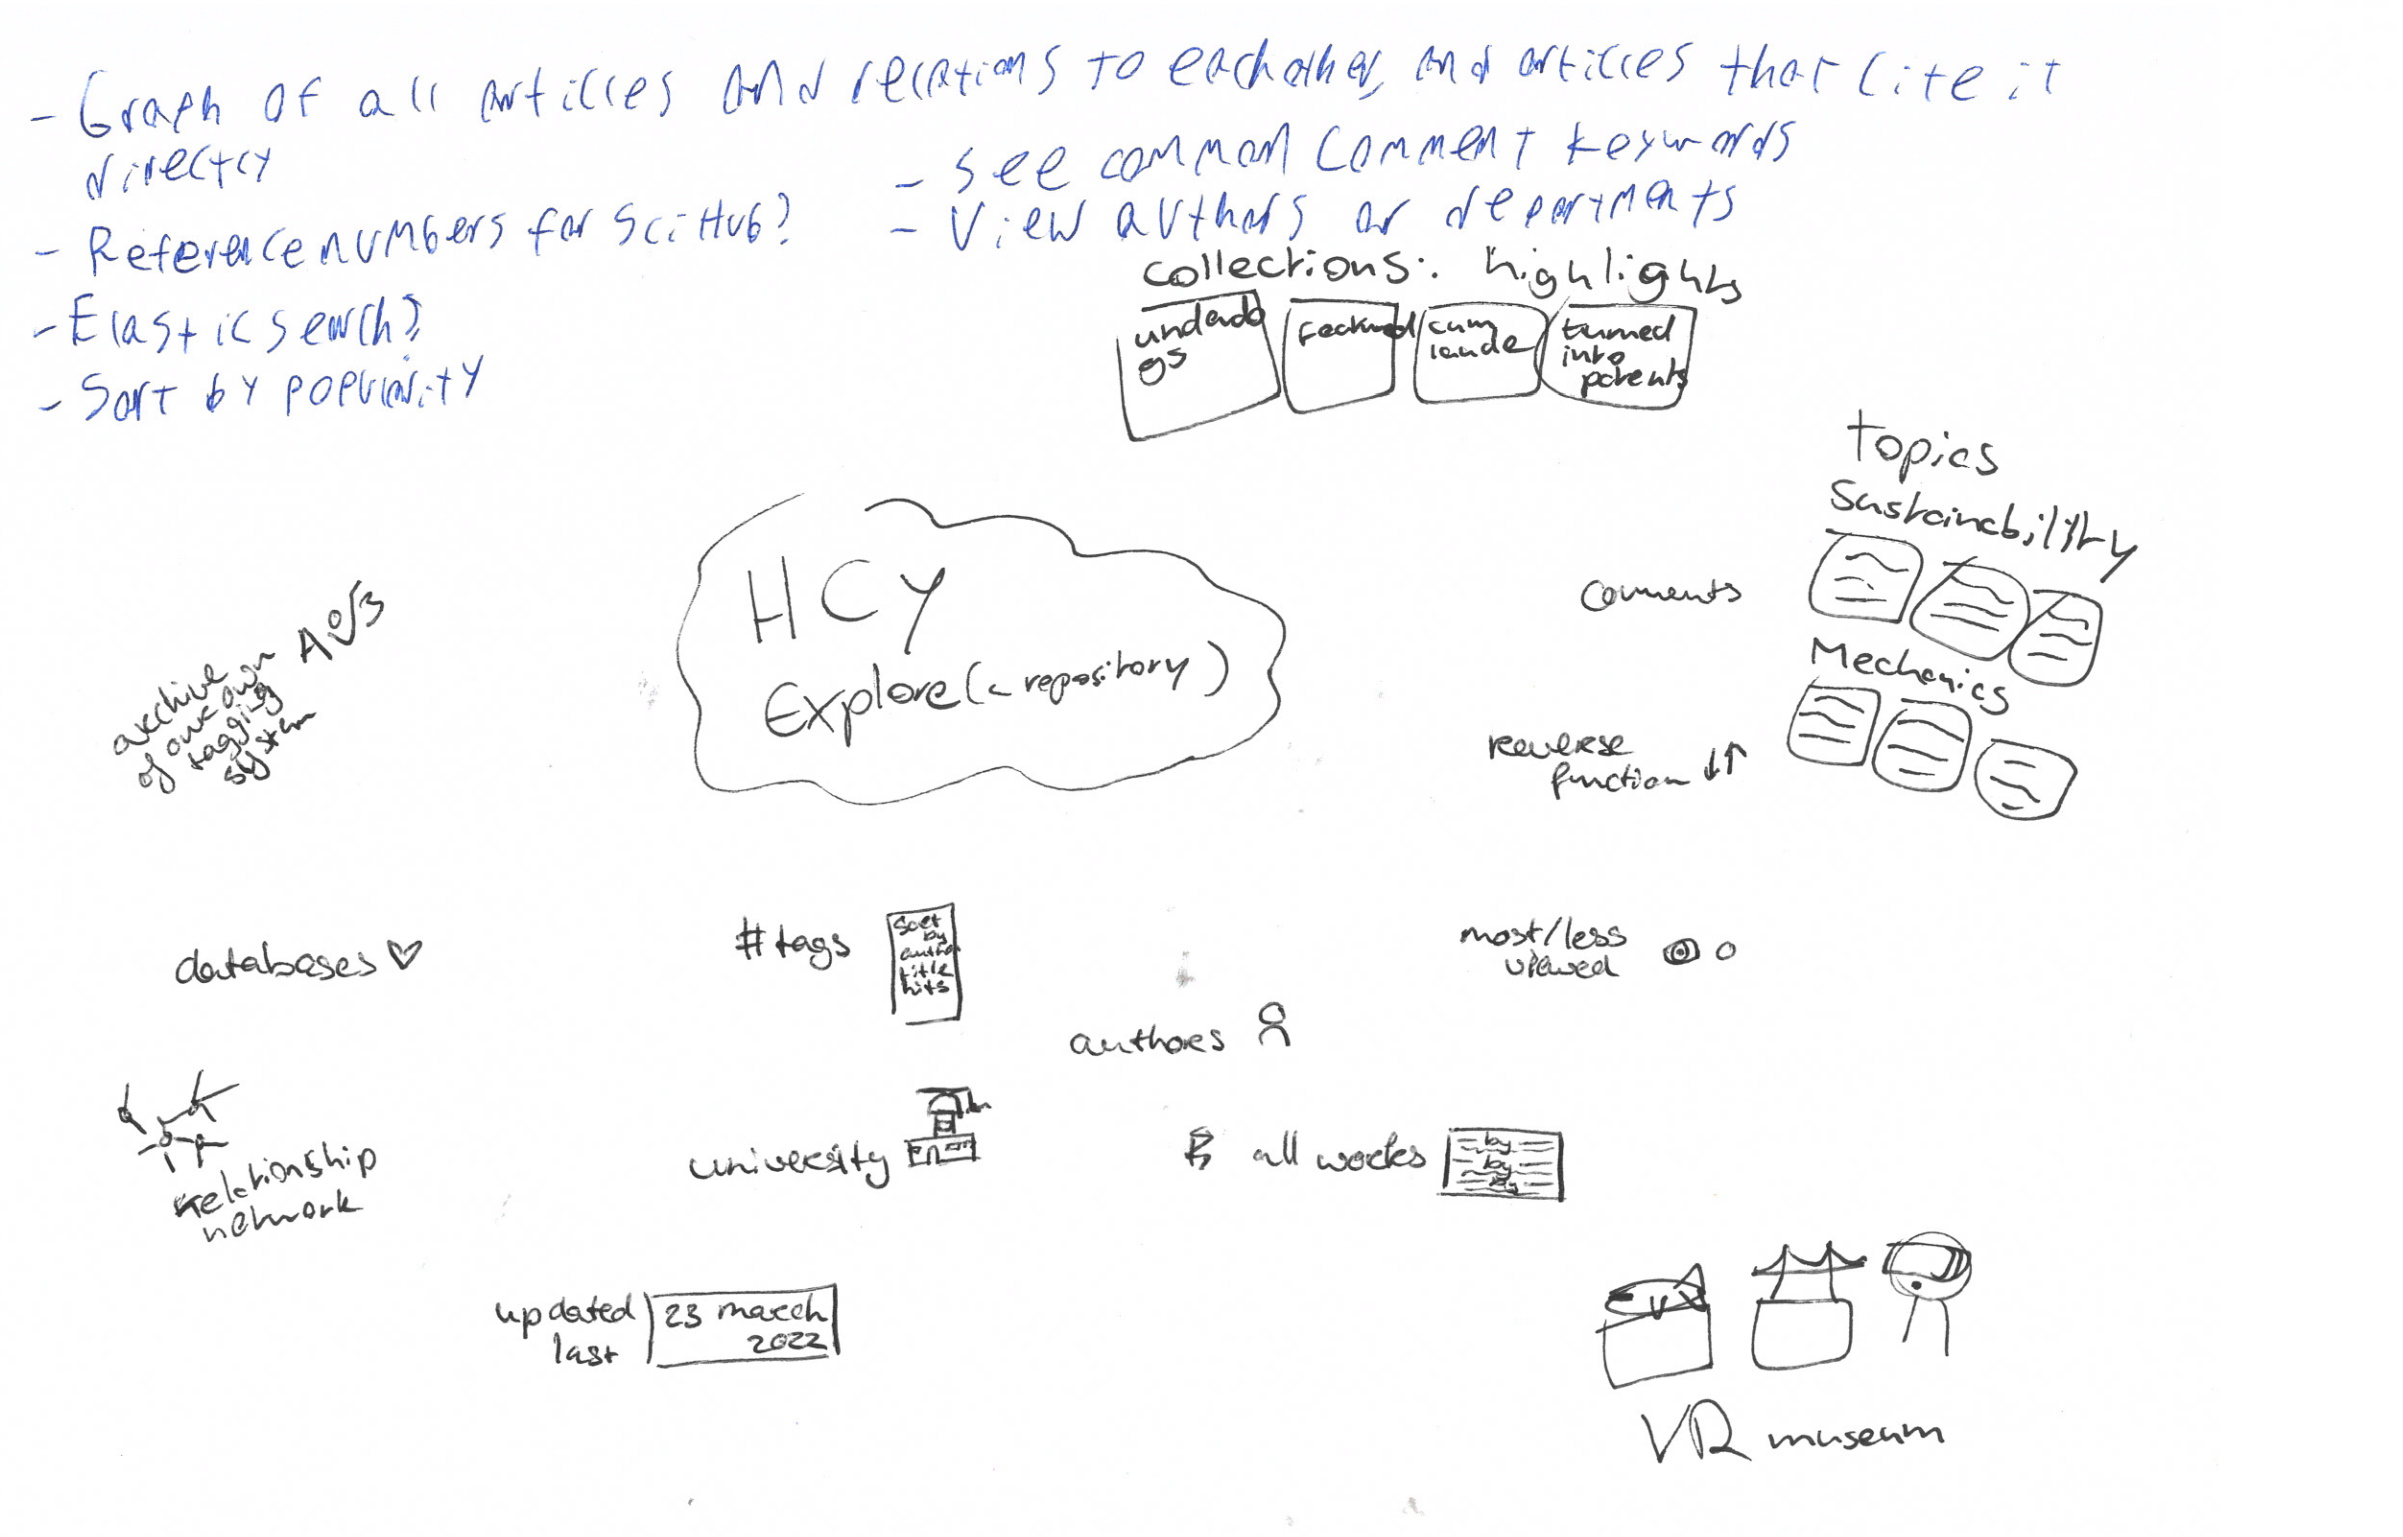 - Graph of all articles and relations to eachother, and articles that cite it
directly
- Reference numbers for SciHub?
- Elastic search?
- Sort by popularity
- See common comment keywords
- View authors or departments
collections: highlights
underdo
gs
featured
cum
laude
turned
into
patents
topics
Sustainability
comments
Mechanics
reverse
function ↓↑
HCY
Explore (a repository)
AO3
archive
of our own
tagging
system
databases ♡
#tags
sort
by
autho
title
hits
most/less
viewed
authors
relationship
network
university
all works
by
by
by
updated
last
23 march
2022
VR museum